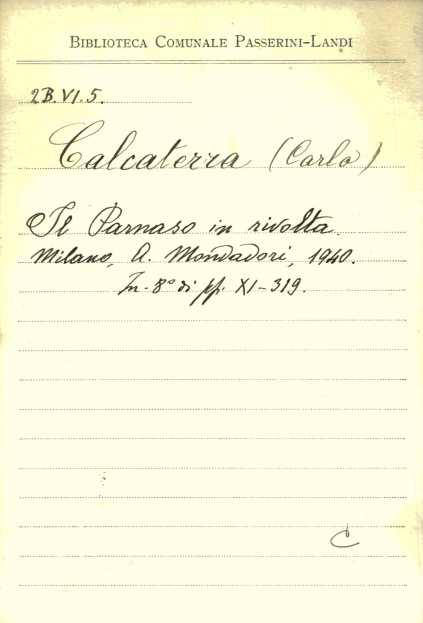 BIBLIOTECA COMUNALE PASSERINI-LANDI
2B.VI.5.
Calcaterra (Carlo)
Il Parnaso in rivolta.
Milano, A. Mondadori, 1940.
In-8° di pp. XI-319.
C